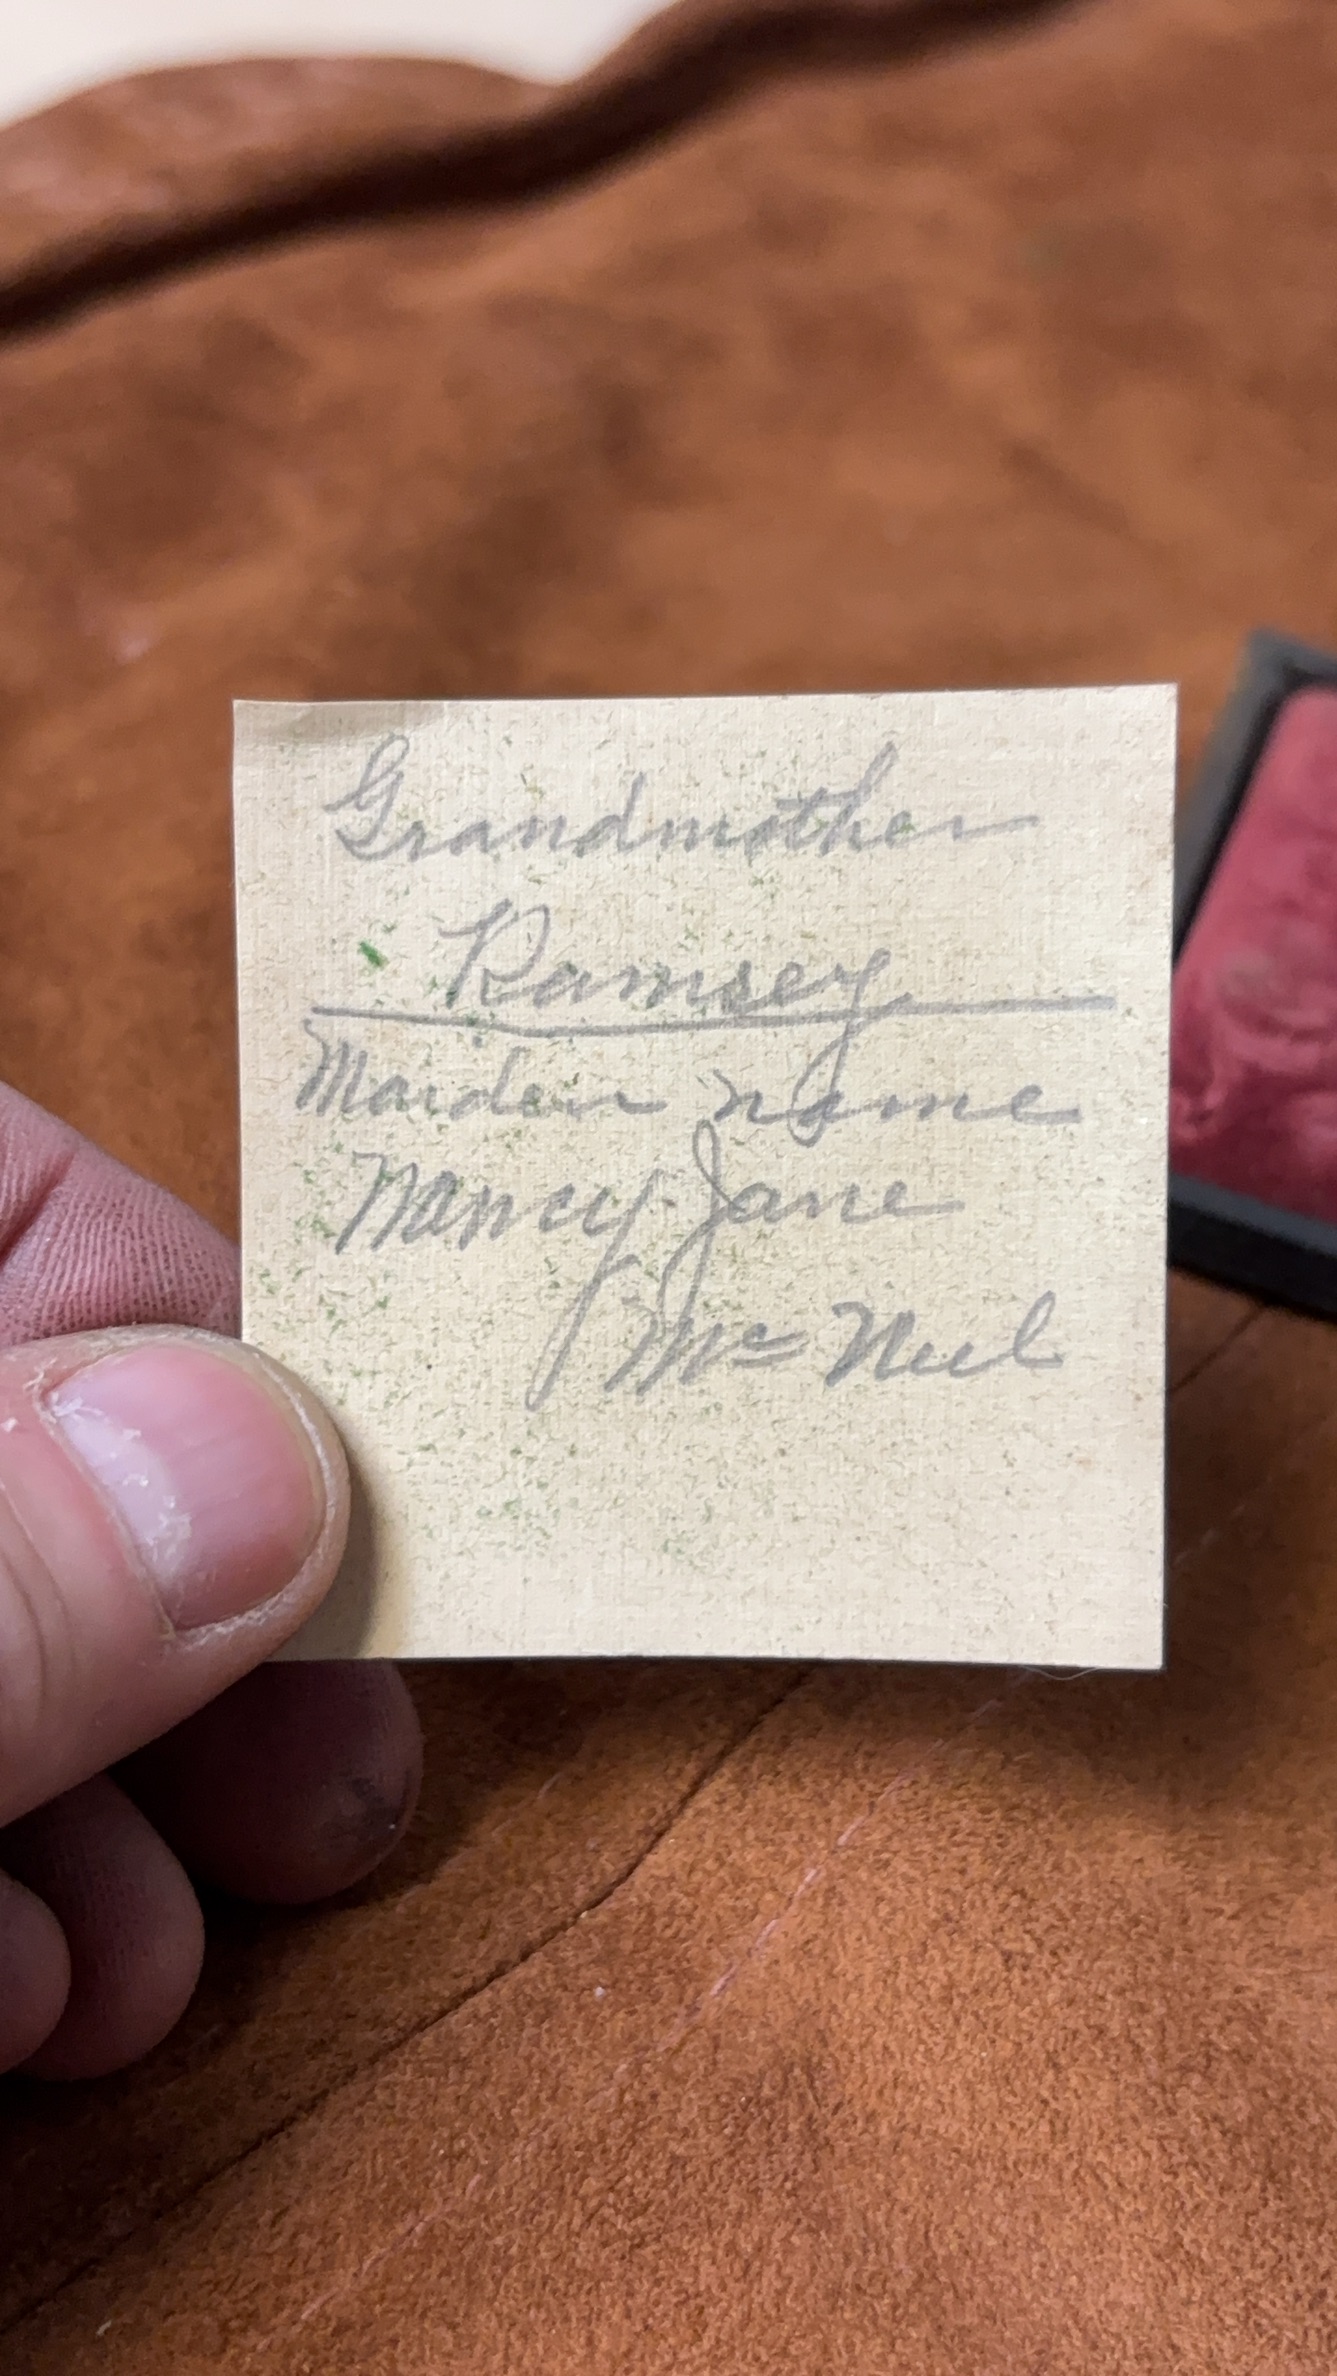 Grandmother
Ramsey
Maiden name
Nancy Jane
Mc Neel